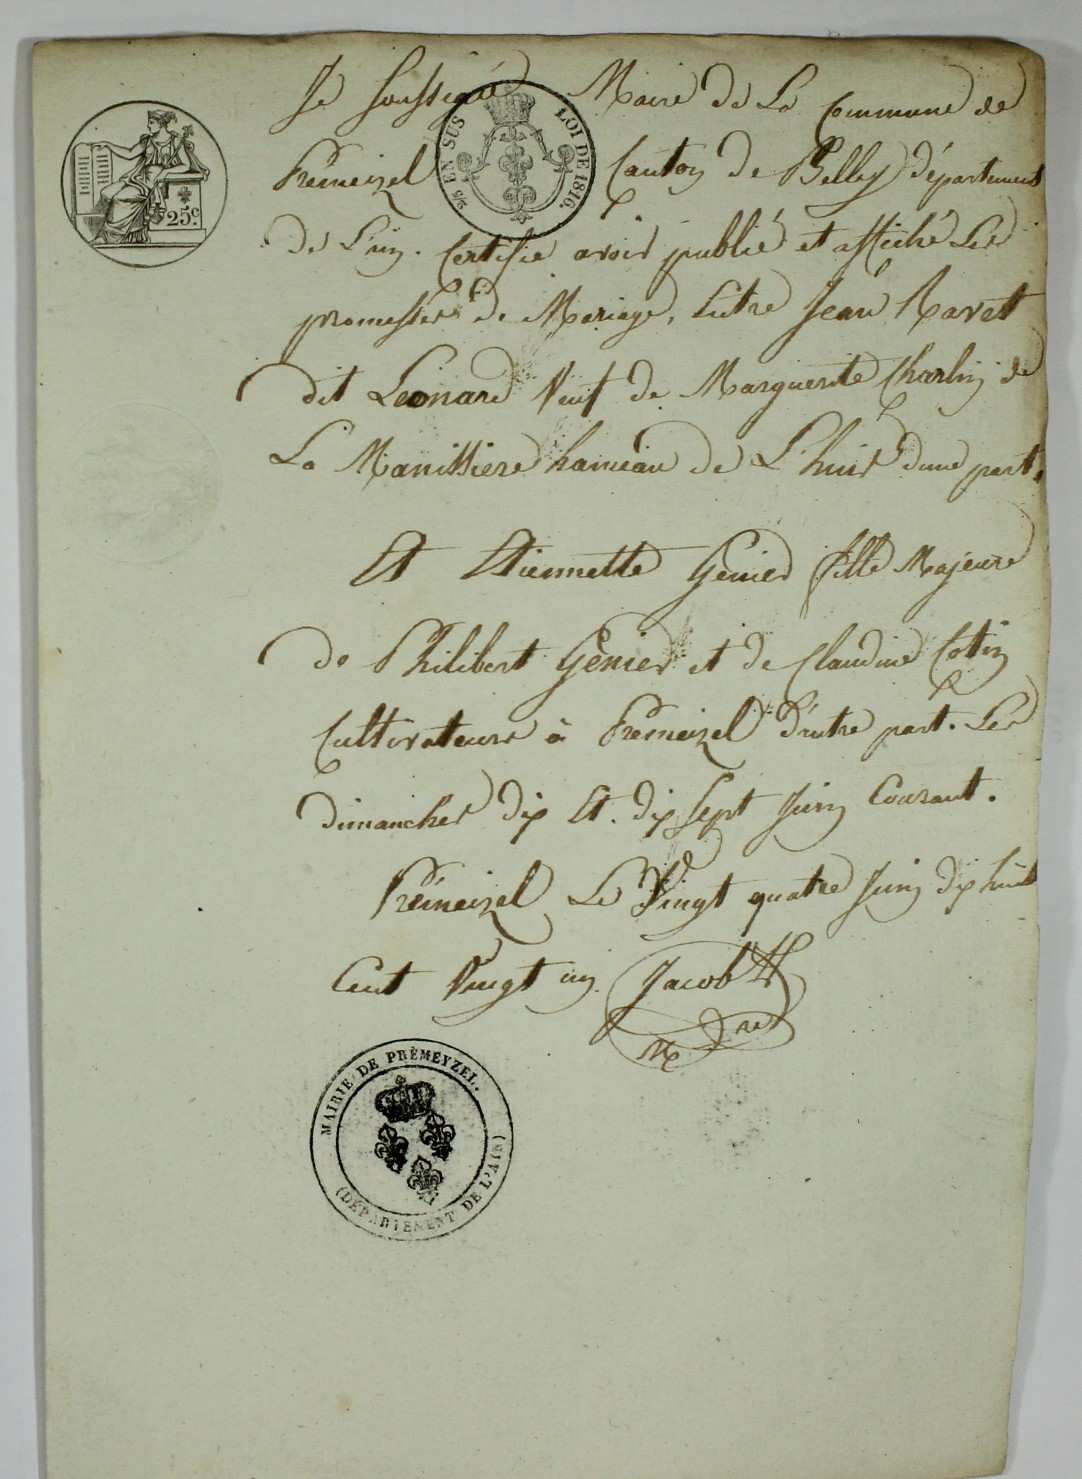 Je soussigné Maire de La Commune de
25c.
5/10 EN SUS LOI DE 1816.
Prémeizel Canton de Belley département
de L'ain. Certifie avoir publié et affiché Les
promesses de Mariage, Entre Jean Ravet
dit Leonard Veuf de Marguerite Charlin de
La Manissiere hameau de L'huis d'une part,
Et Etiennette Genier fille Majeure
de Philibert Génier et de Claudine Cotin
Cultivateurs à Prémeizel D'autre part. Les
dimanches dix Et. dix Sept Juin Courant.
Prémeizel Le Vingt quatre Juin dix huit
Cent Vingt un. Jacob
M re
MAIRIE DE PRÈMEYZEL.
(DÉPARTEMENT DE L'AIN)